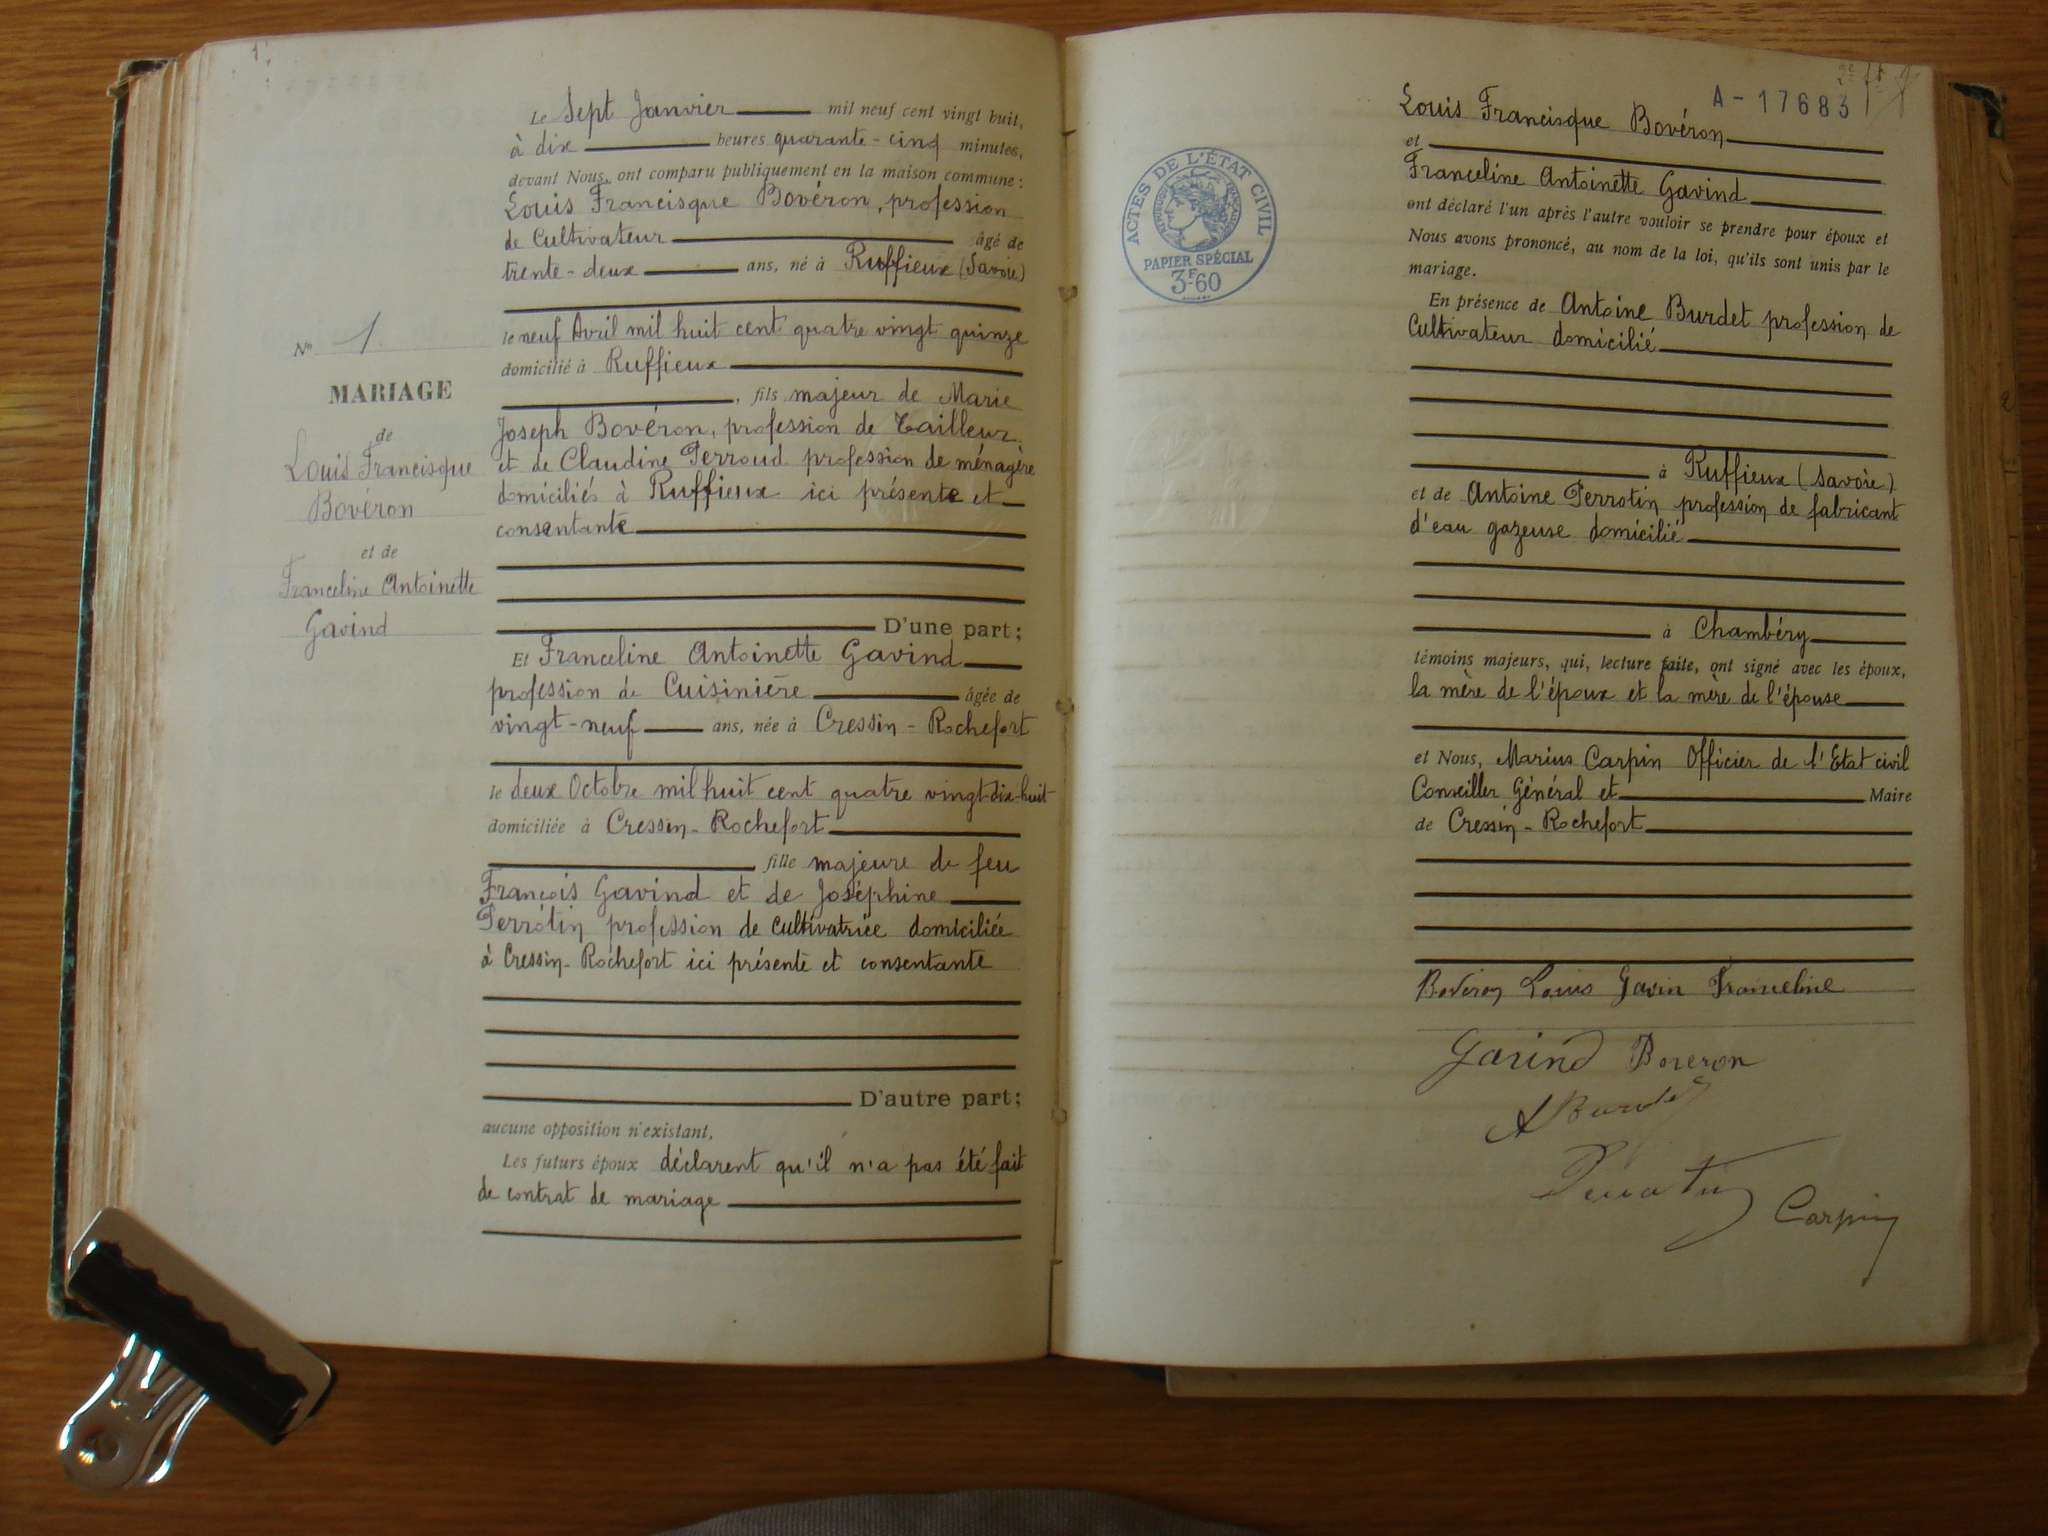 1
Le Sept Janvier mil neuf cent vingt huit,
à dix heures quarante-cinq minutes,
devant Nous, ont comparu publiquement en la maison commune :
Louis Francisque Bovéron, profession
de Cultivateur âgé de
trente-deux ans, né à Ruffieux (Savoie)
le neuf Avril mil huit cent quatre vingt quinze
domicilié à Ruffieux
, fils majeur de Marie
Joseph Bovéron, profession de Tailleur,
et de Claudine Perroud profession de ménagère
domiciliés à Ruffieux ici présente et
consentante
D'une part;
Et Franceline Antoinette Gavind
profession de Cuisinière âgée de
vingt-neuf ans, née à Cressin-Rochefort
le deux Octobre mil huit cent quatre vingt-dix-huit
domiciliée à Cressin-Rochefort
fille majeure de feu
François Gavind et de Joséphine
Perrotin profession de cultivatrice domiciliée
à Cressin-Rochefort ici présente et consentante
D'autre part;
aucune opposition n'existant,
Les futurs époux déclarent qu'il n'a pas été fait
de contrat de mariage
No 1.
MARIAGE
de
Louis Francisque
Bovéron
et de
Franceline Antoinette
Gavind
A-17683
ACTES DE L'ÉTAT CIVIL
PAPIER SPÉCIAL
3F60
Louis Francisque Bovéron
et
Franceline Antoinette Gavind
ont déclaré l'un après l'autre vouloir se prendre pour époux et
Nous avons prononcé, au nom de la loi, qu'ils sont unis par le
mariage.
En présence de Antoine Burdet profession de
Cultivateur domicilié
à Ruffieux (Savoie)
et de Antoine Perrotin profession de fabricant
d'eau gazeuse domicilié
à Chambéry
témoins majeurs, qui, lecture faite, ont signé avec les époux,
la mère de l'époux et la mère de l'épouse
et Nous, Marius Carpin Officier de l'Etat civil
Conseiller Général et Maire
de Cressin-Rochefort
Bovéron Louis Gavin Franceline
Gavind Boveron
A Burdet
Perrotin
Carpin